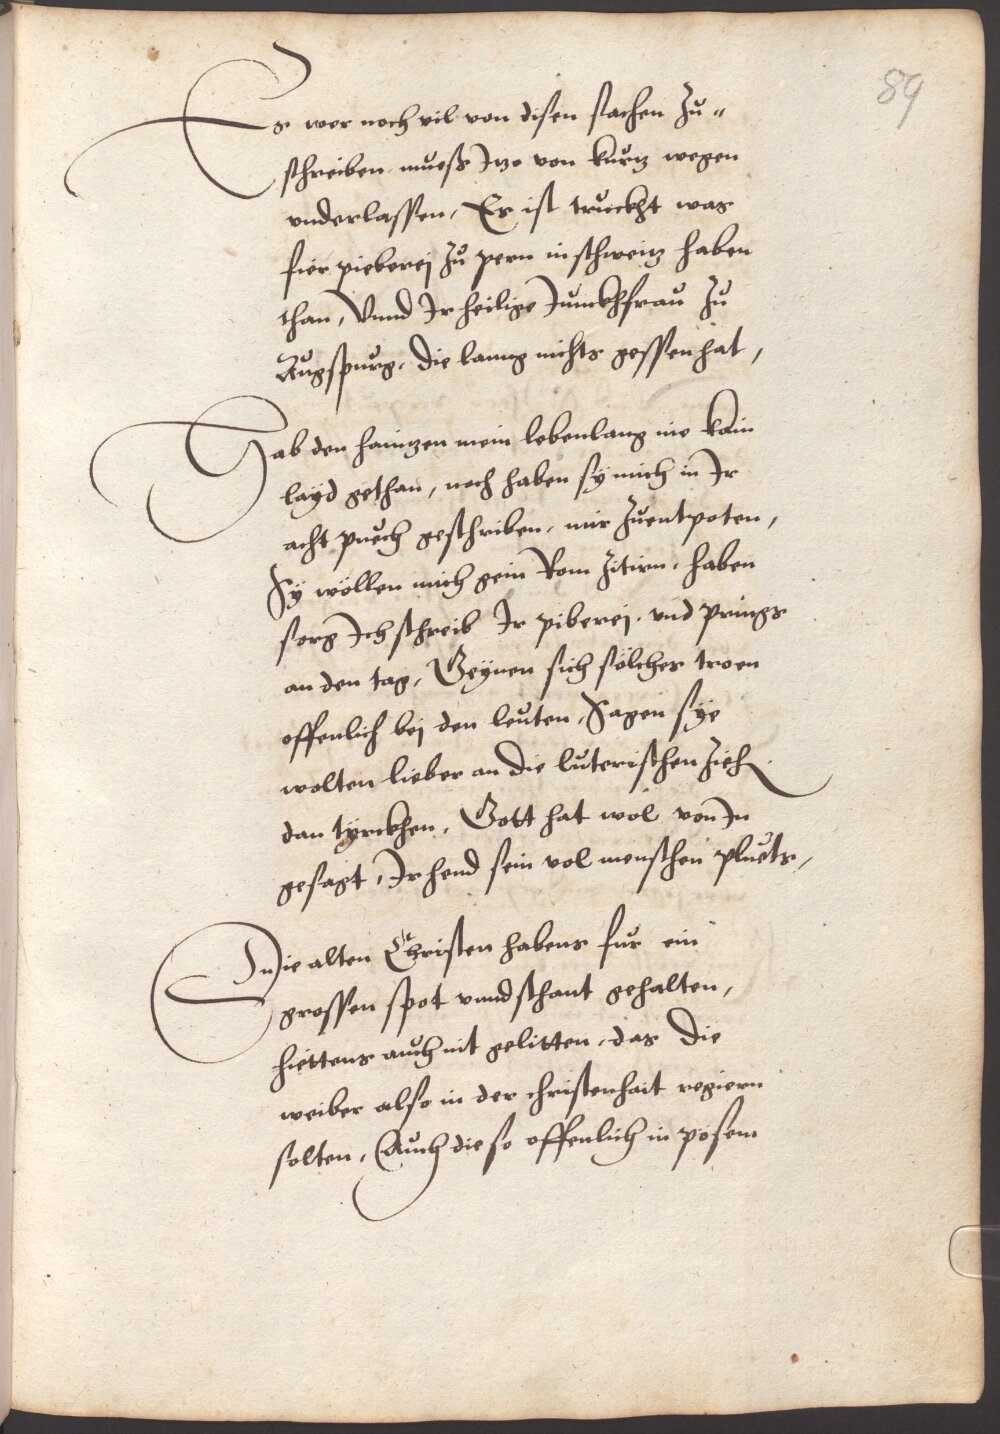 89
Es wer noch vil von disen sachen zů„
schreiben. mueß Jtzo von kurtz wegen
vnderlassen, Es ist truckht was
fier pieberej zů pern in schweitz haben
than, Vnnd Jr heilige Junckhfrau zů
Augspurg, die lanng nichts gessen hat,
Hab den haintzen mein lebenlang nie kain
layd gethan, noch haben sy mich in Jr
acht puech geschriben, mir zuentpoten,
Sy wöllen mich gein Rom zitirn, haben
sorg Jch schreib Jr piberej, vnd prings
an den tag, Geynen sich solches troen
offenlich bej den leuten, Sagen sye
wolten lieber an die luterischen ziehen
dan tyrckhen, Gott hat wol von Jn
gesagt, Jr hend sein vol menschen pluets,
Die alten Christen habens fur ein
grossen spot vnnd schant gehalten,
hiettens auch nit gelitten, das die
weiber also in der christenhait regiern
solten, Auch die so offenlich in posem